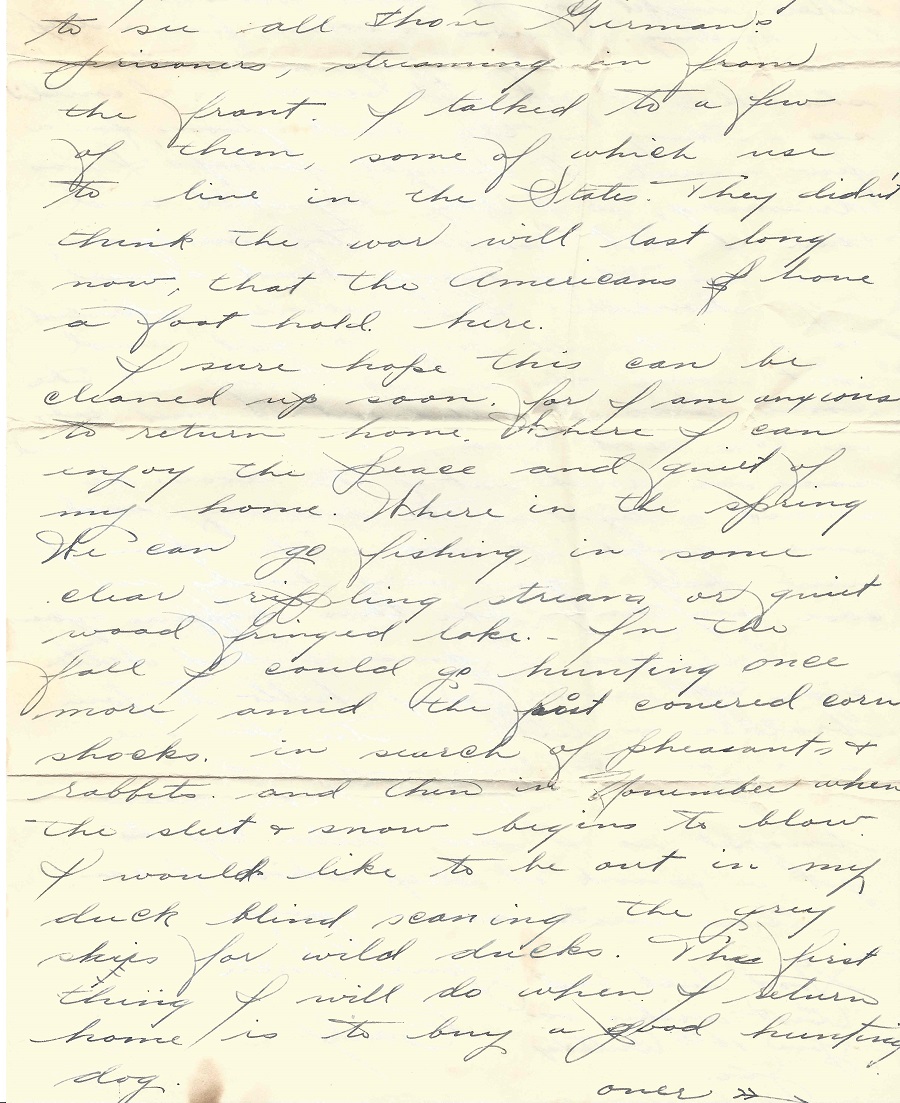 to see all thos German's
prisoners, streaming in from
the front. I talked to a few
of them, some of which use
to live in the States. They didn't
think the war will last long
now, that the Americans have
a foot hold. here.
I sure hope this can be
cleaned up soon. for I am anxious
to return home. Where I can
enjoy the peace and quiet of
my home. Where in the spring
We can go fishing, in some
clear rippling stream or quiet
wood fringed lake. - In the
fall I could go hunting once
more, amid the frost covered corn
shocks. in search of pheasants &
rabbits. and then in November when
the sleet & snow begins to blow.
I would like to be out in my
duck blind scaning the grey
skys for wild ducks. The first
thing I will do when I return
home is to buy a good hunting
dog.
over »